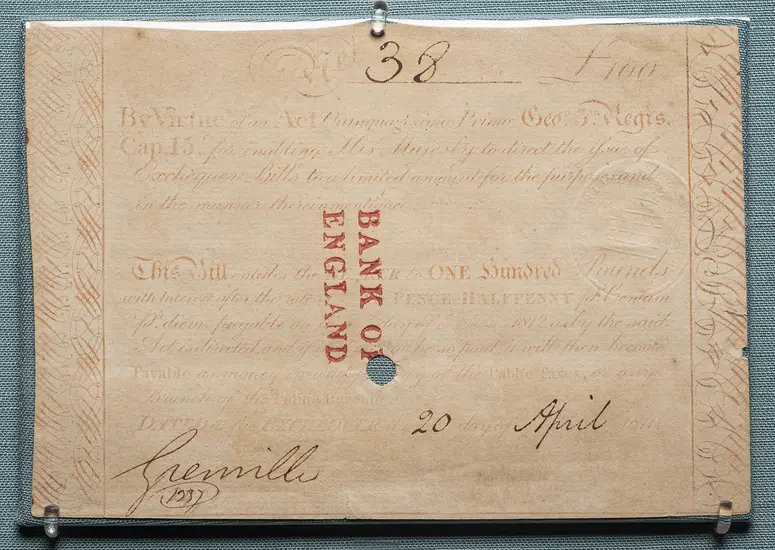 No. 38 £100
By Virtue of an Act Quinquagesimo Primo Geo. 3rd Regis.
Cap. 15. for enabling His Majesty to direct the issue of
Exchequer Bills to a limited amount for the purposes and
in the manner therein mentioned
BANK OF
ENGLAND
This Bill entitles the to ONE Hundred Pounds
with Interest after the PENCE HALFPENNY
diem, payable 1812, as by the said
Act is directed and if paid, it will then become
Payable of the Public Taxes, or any
Branch of the Public
DATED at 20 day of April
Grenville
1237